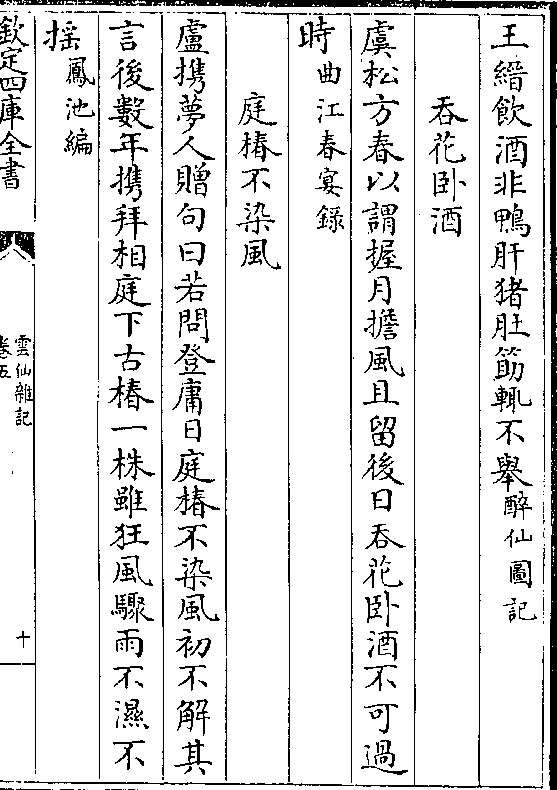 王縉飲酒非鴨肝猪肚筯輒不舉醉仙圖記
吞花卧酒
虞松方春以謂握月擔風且留後日吞花卧酒不可過
時曲江春宴錄
庭椿不染風
盧携夢人贈句曰若問登庸日庭椿不染風初不解其
言後數年携拜相庭下古椿一株雖狂風驟雨不濕不
揺鳳池編
欽定四庫全書
雲仙雜記
卷五
十